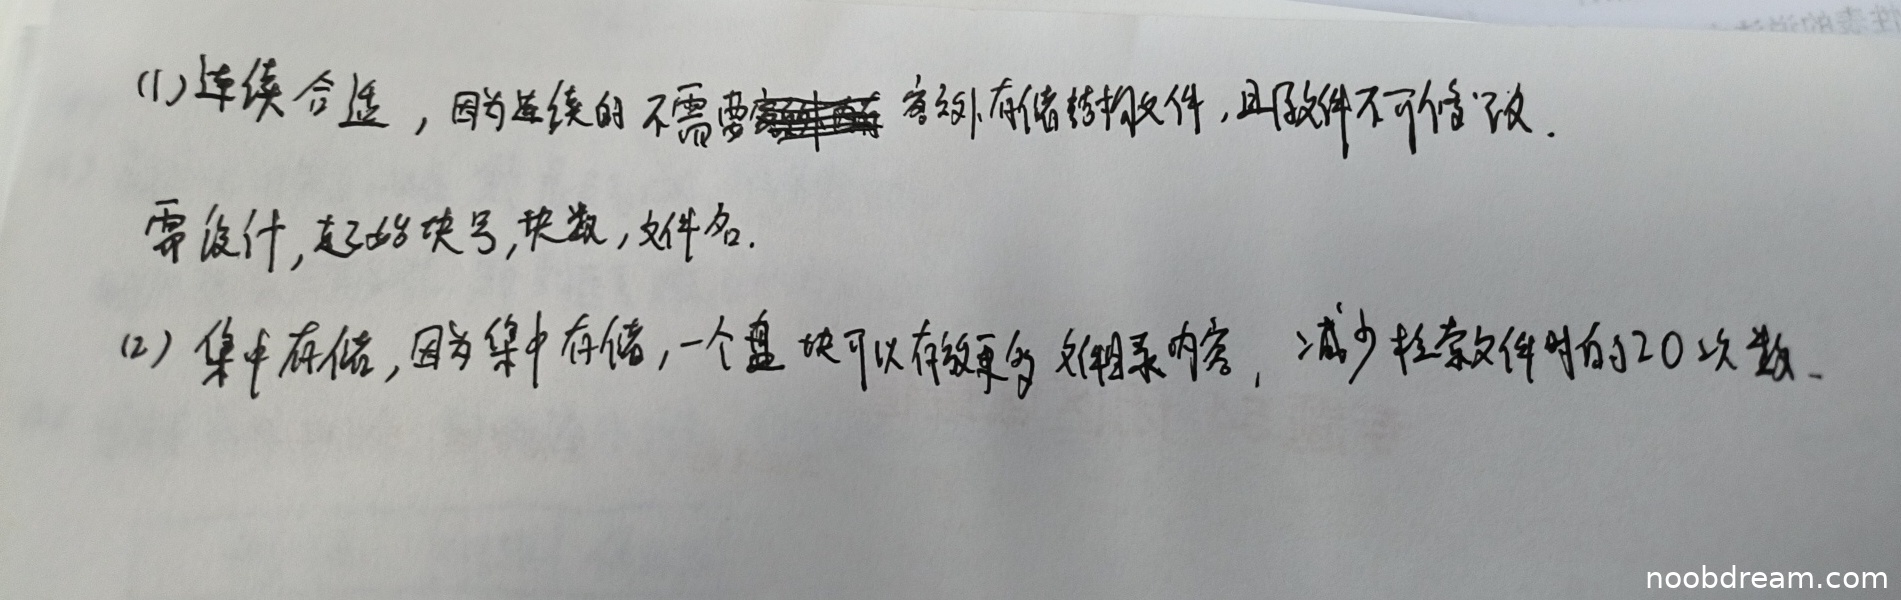 (1)连续合适，因为连续的不需要额外存储结构文件，且文件不可修改.
需设计,起始块号,块数,文件名.
(2)集中存储,因为集中存储,一个盘块可以存放更多文件目录内容,减少检索文件时的IO次数.
noobdream.com